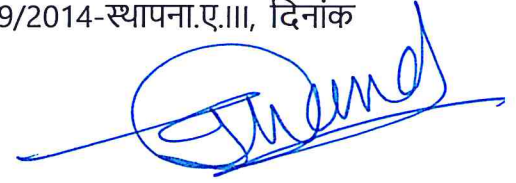 9/2014-स्थापना.ए.III, दिनांक